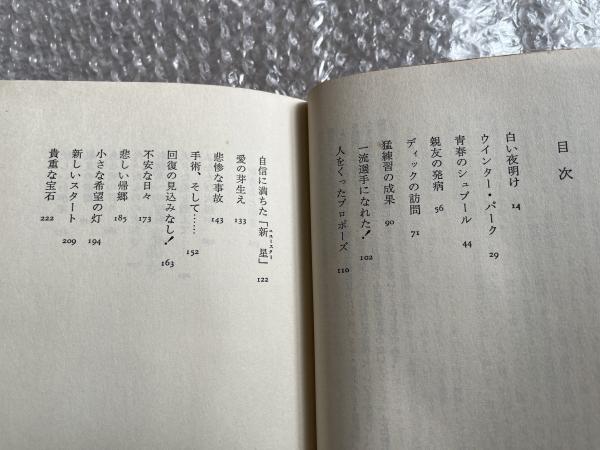 目次
白い夜明け 14
ウインター・パーク 29
青春のシュプール 44
親友の発病 56
ディックの訪問 71
猛練習の成果 90
一流選手になれた! 102
人をくったプロポーズ 110
自信に満ちた「新星」 122
ニュースター
愛の芽生え 133
悲惨な事故 143
手術、そして…… 152
回復の見込みなし! 163
不安な日々 173
悲しい帰郷 185
小さな希望の灯 194
新しいスタート 209
貴重な宝石 222